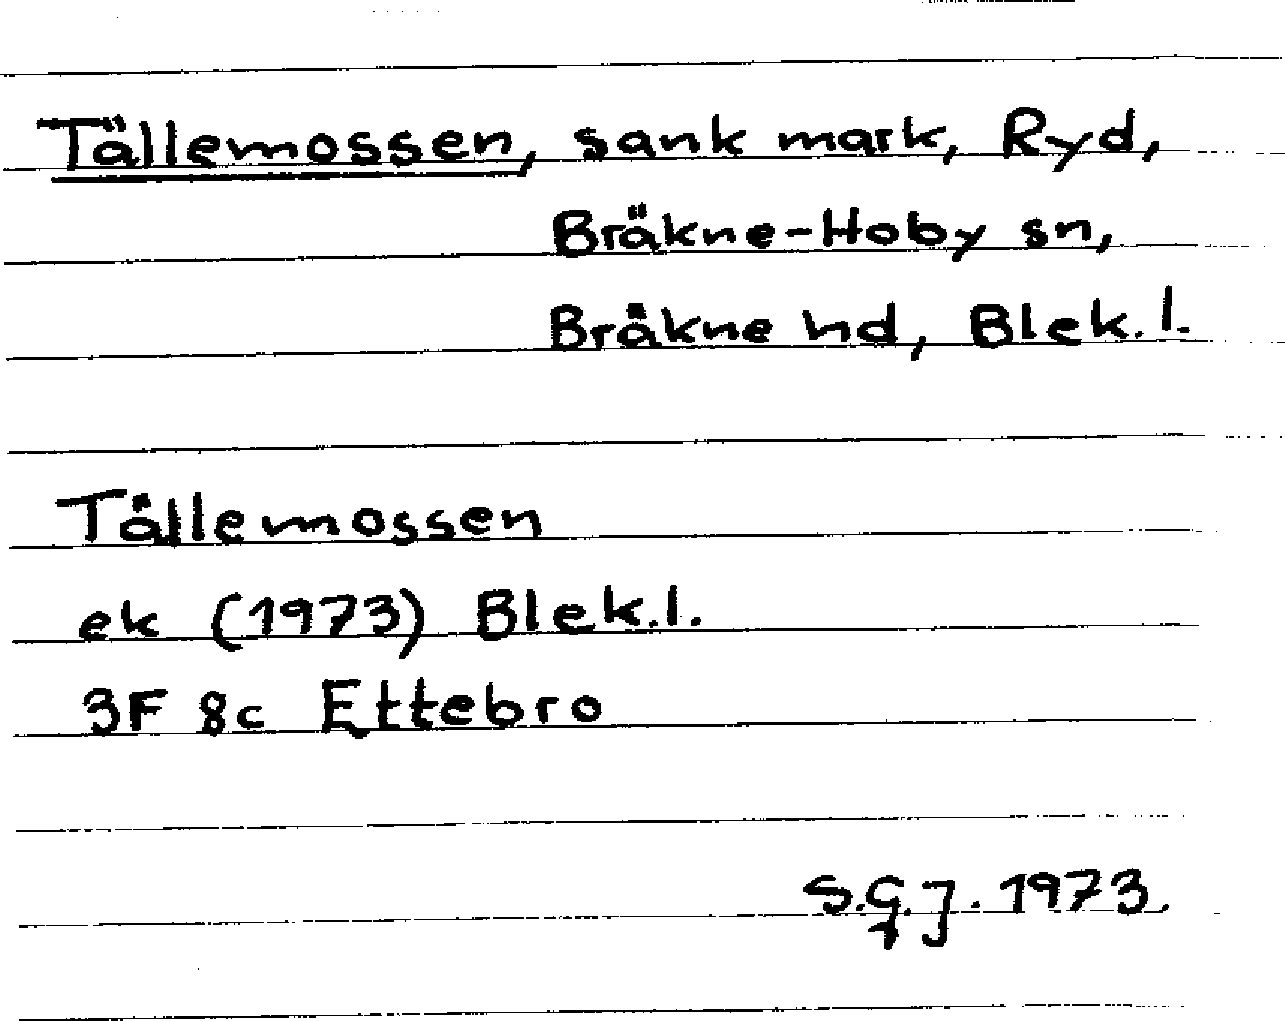 Tällemossen, sank mark, Ryd,
Bräkne-Hoby sn,
Bräkne hd, Blek. l.
Tällemossen
ek (1973) Blek. l.
3F 8c Ettebro
S.G.J. 1973.